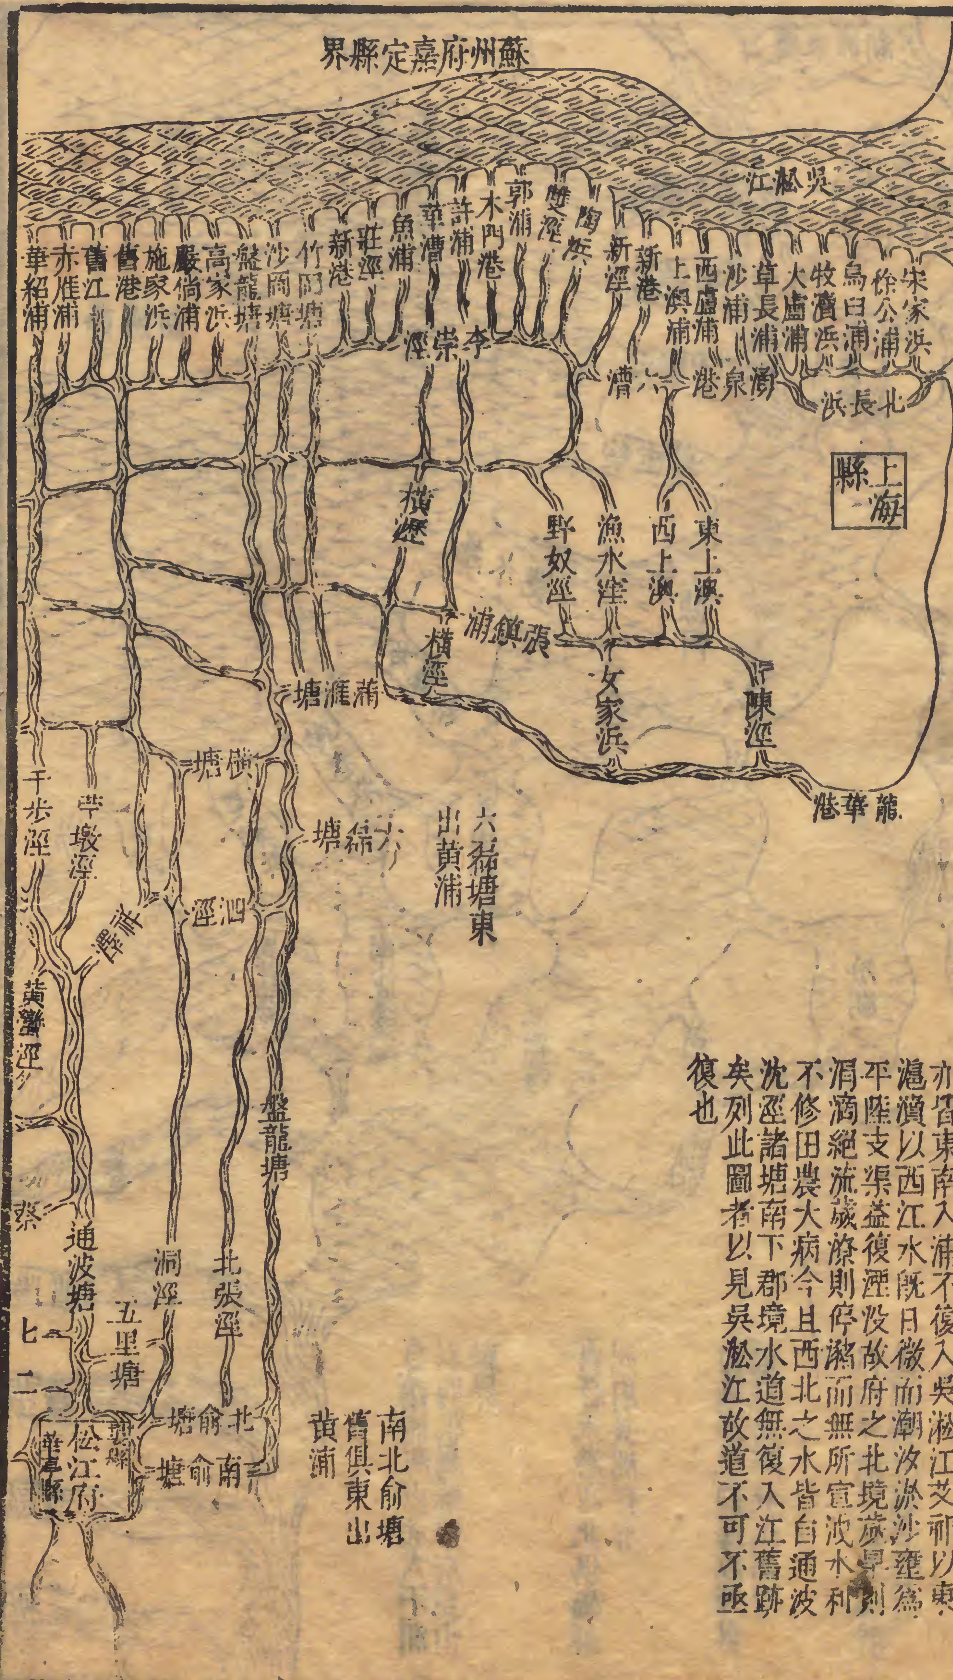 蘇州府嘉定縣界
吳淞江
宋家浜
徐公浦
烏臼浦
牧瀆浜
大盧浦
草長浦
沙浦
西盧浦
上澳浦
新港
新涇
陶浜
雙涇
郭浦
木門港
許浦
華漕
魚浦
莊涇
新港
竹岡塘
沙岡塘
盤龍塘
高家浜
嚴倘浦
施家浜
舊港
舊江
亦雁浦
華紹浦
北長浜
湧泉港
六漕
李崇涇
上海縣
東上澳
西上澳
漁水漥
野奴涇
橫瀝
張鎮浦
橫涇
蒲滙塘
女家浜
陳涇
龍華港
橫塘
千步涇
六磊塘
六磊塘東
出黃浦
泗涇
盤龍塘
通波塘
洞涇
北張涇
五里塘
北俞塘
南俞塘
松江府
華亭縣
南北俞塘
舊俱東出
黃浦
亦皆東南入浦不復入吳淞江艾祁以東
滬瀆以西江水旣日微而潮汐淤沙壅爲
平陸支渠益復湮没故府之北境歲旱則
涓滴絕流歲潦則停瀦而無所宣洩水利
不修田農大病今且西北之水皆自通波
沈涇諸塘南下郡境水道無復入江舊跡
矣列此圖者以見吳淞江故道不可不亟
復也